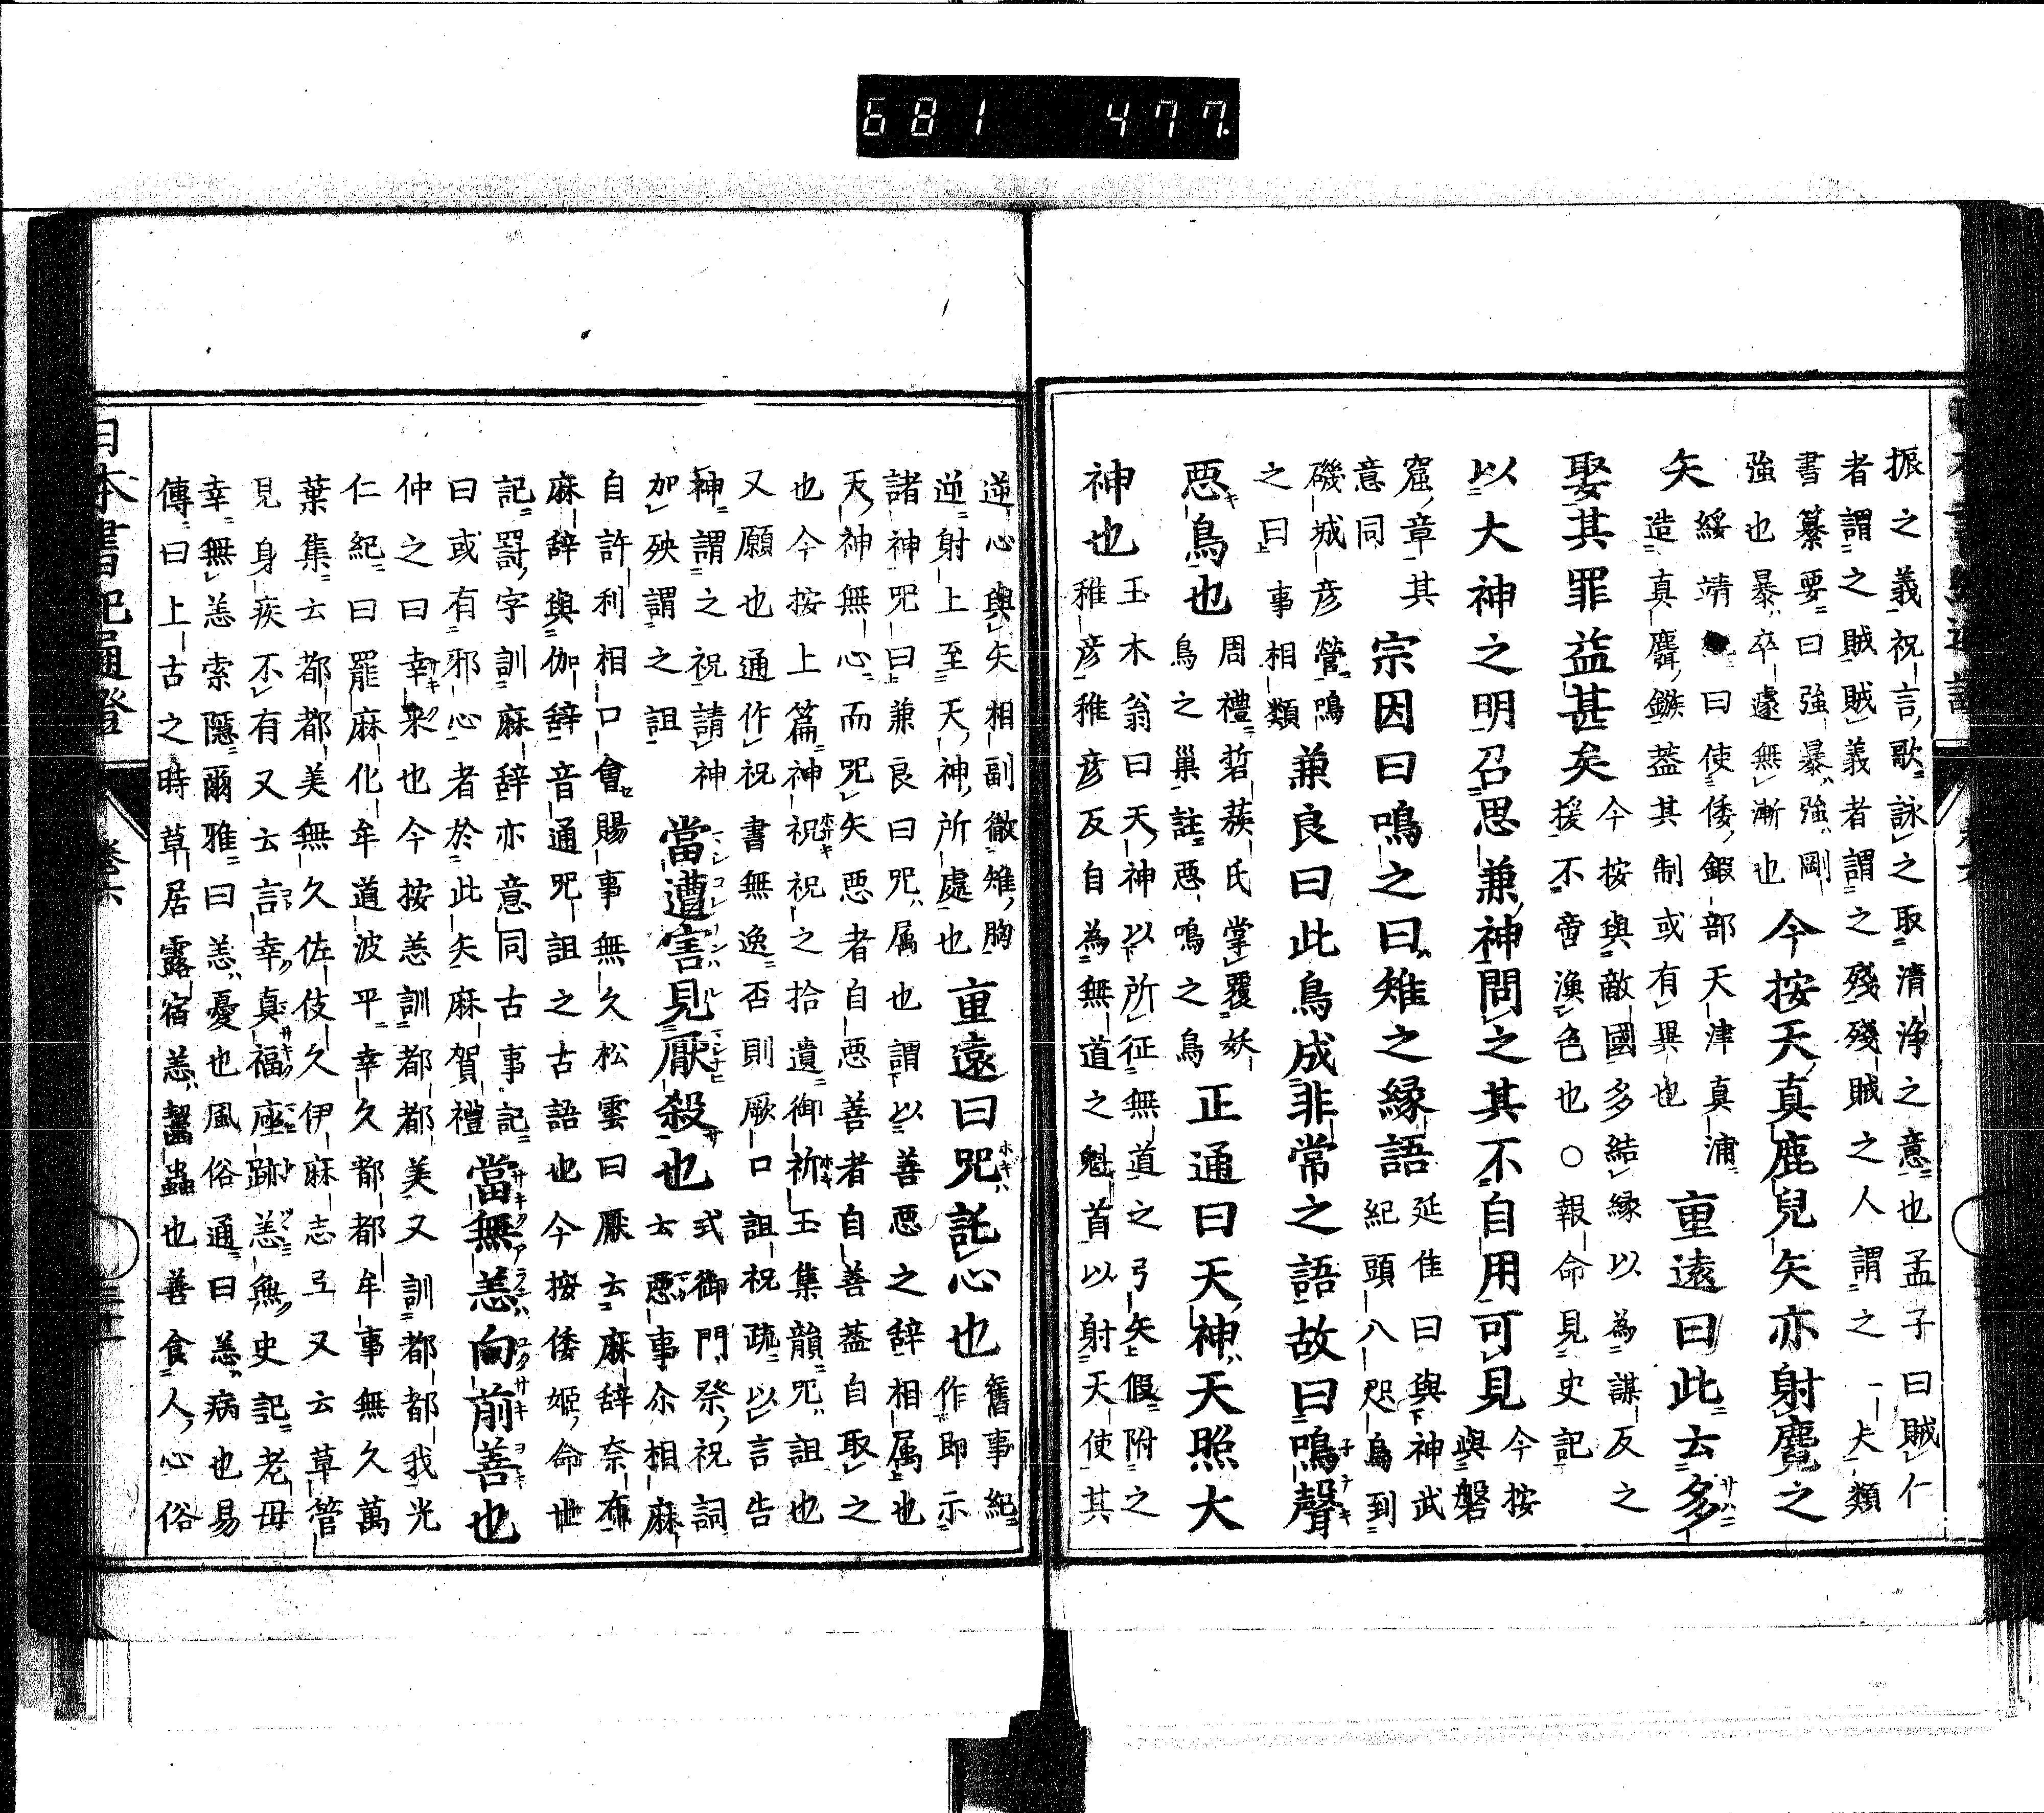 681 477
振之義祝言歌詠之取清浄之意也孟子曰賊仁
者謂之賊賊義者謂之殘殘賊之人謂之一夫類
書纂要曰強暴強剛
強也暴卒遽無漸也
今按天真鹿兒矢亦射麑之
矢
綏靖紀曰使倭鍜部天津真浦
造真麛鏃蓋其制或有異也
重遠曰此云多
娶其罪益甚矣
今按與敵國多結縁以為謀反之
援不啻漁色也○報命見史記
以大神之明召思兼神問之其不自用可見
今按
與磐
窟章其
意同
宗因曰鳴之曰雉之縁語
延佳曰與神武
紀頭八咫烏到
磯城彦營鳴
之曰事相類
兼良曰此鳥成非常之語故曰鳴聲
惡鳥也
周禮硩蔟氏掌覆妖
鳥之巢註惡鳴之鳥
正通曰天神天照大
神也
玉木翁曰天神以所征無道之弓矢假附之
稚彦稚彦反自為無道之魁首以射天使其
逆心與矢相副徹雉胸
逆射上至天神所處也
重遠曰咒託心也
舊事紀
作即示
諸神咒曰兼良曰咒属也謂以善惡之辞相属也
天神無心而咒矢惡者自惡善者自善蓋自取之
也今按上篇神祝祝之拾遺御祈玉集韻咒詛也
又願也通作祝書無逸否則厥口詛祝疏以言告
神謂之祝請神
加殃謂之詛
當遭害見厭殺也
式御門祭祝詞
云惡事尒相麻
自許利相口會賜事無久松雲曰厭云麻辞奈布
麻辞與伽辞音通咒詛之古語也今按倭姬命世
記罸字訓麻辞亦意同古事記
曰或有邪心者於此矢麻賀禮
當無恙向前善也
仲之曰幸来也今按恙訓都都美又訓都都我光
仁紀曰罷麻化牟道波平幸久都都牟事無久萬
葉集云都都美無久佐伎久伊麻志弖又云草管
見身疾不有又云言幸真福座跡恙無史記老母
幸無恙索隠爾雅曰恙憂也風俗通曰恙病也易
傳曰上古之時草居露宿恙齧蟲也善食人心俗
日本書紀通證